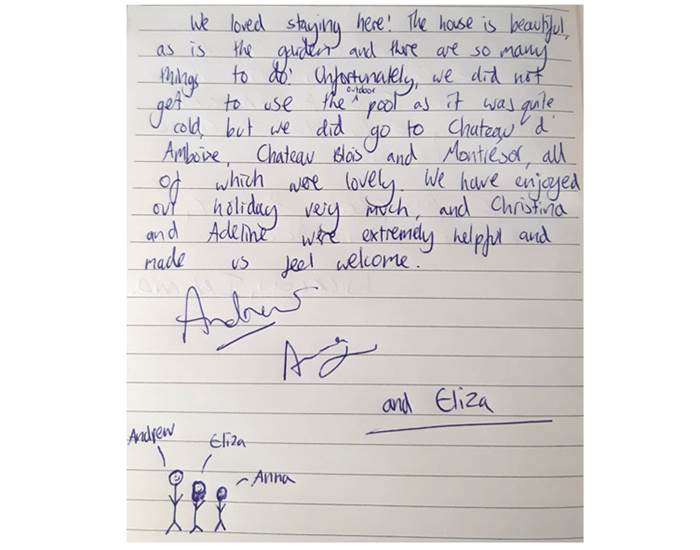 We loved staying here! The house is beautiful,
as is the garden and there are so many
things to do! Unfortunately, we did not
outdoor
get to use the ^ pool as it was quite
cold, but we did go to Chateau d'
Amboise, Chateau Blois and Montresor, all
of which were lovely. We have enjoyed
our holiday very much, and Christina
and Adeline were extremely helpful and
made us feel welcome.
Andrew
and Eliza
Andrew
Eliza
Anna